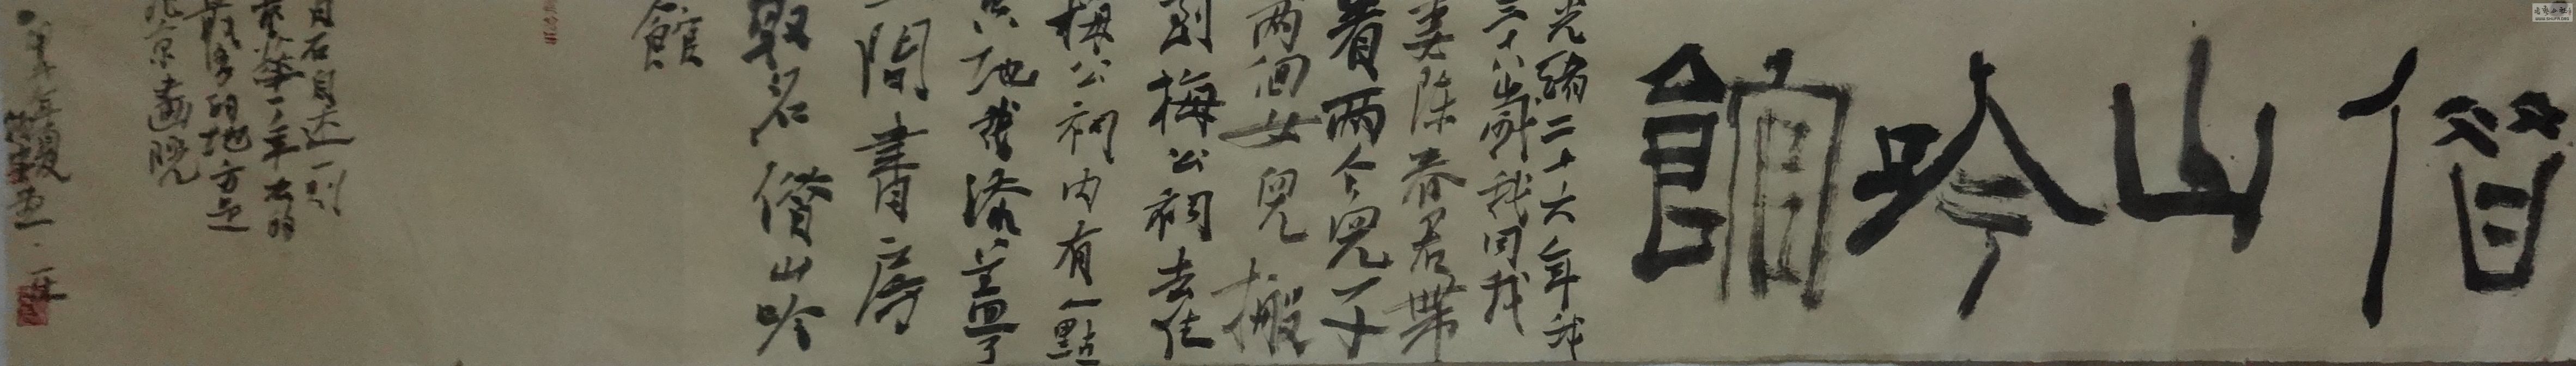 借山吟館
光緒二十六年我
三十八歲我同我
妻陈春君帶
着两个兒子
两個女兒搬
到梅公祠去住
梅公祠内有一點
空地我添蓋了
一間書房
取名借山吟
館
白石自述一引
京華丁年去的
最多的地方是
北京畫院